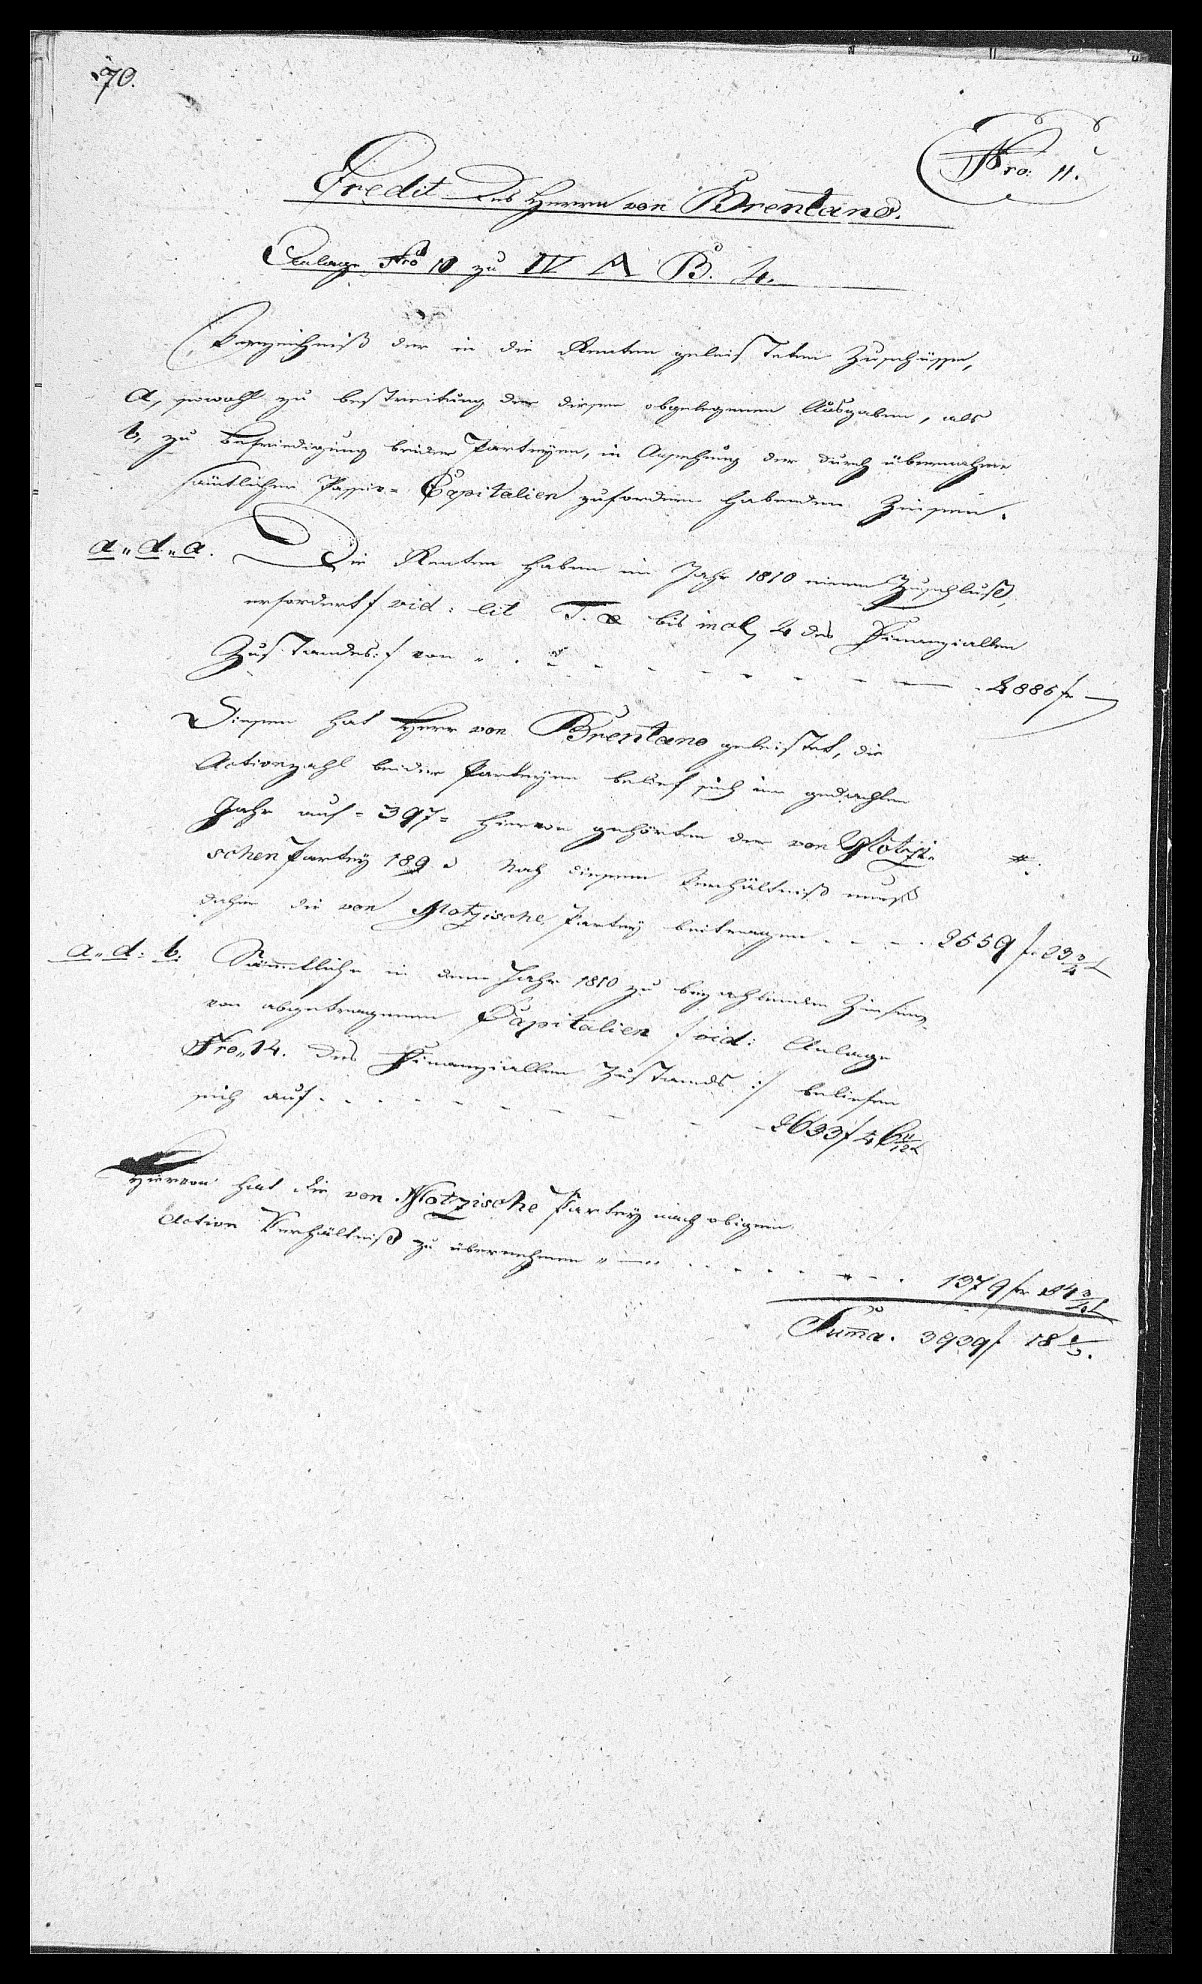 70.
Nro: 11.
Credit des Herrn von Brentano.
Anlage Nro 10 zu IV A B. 4.
Verzeichniß der in die Renten geleisteten Zuschüsse,
a, sowohl zu bestreitung der diesen obgelegenen Ausgaben, als
b, zu Befriedigung beider Partheyen, in Ansehung der durch übernahme
sämtlicher Passiv- Capitalien zufordern habenden Zinsen.
a. d. a. Die Renten haben im Jahr 1810 einen Zuschuß,
erfordert / vid: lit T. bis incl, 4 des Finanziellen
Zustandes :/ von - - - - - 4886 fr —
Diesen hat Herr von Brentano geleistet, die
Actienzahl beider Partheyen belief sich im gedachten
Jahr auf - 397 - hievon gehörten der von Motzi-
schen Partey 189 Nach diesem Verhältniß muß
daher die von Motzische Partey beitragen - - - - 2559 f. 23 3/4
a. d. b. Sämmtliche in dem Jahr 1810 zu bezahlenden Zinsen,
von abgetragenen Capitalien / vid: Anlage
Nro„ 14. des Finanziellen Zustands :/ beliefen
sich auf - - - - - 2633 f
Hievon hat die von Motzische Partey nach obigem
Actien Verhältniß zu übernehmen - - - - - 1379 fr 54 3/4
Suma. 3939 f 18